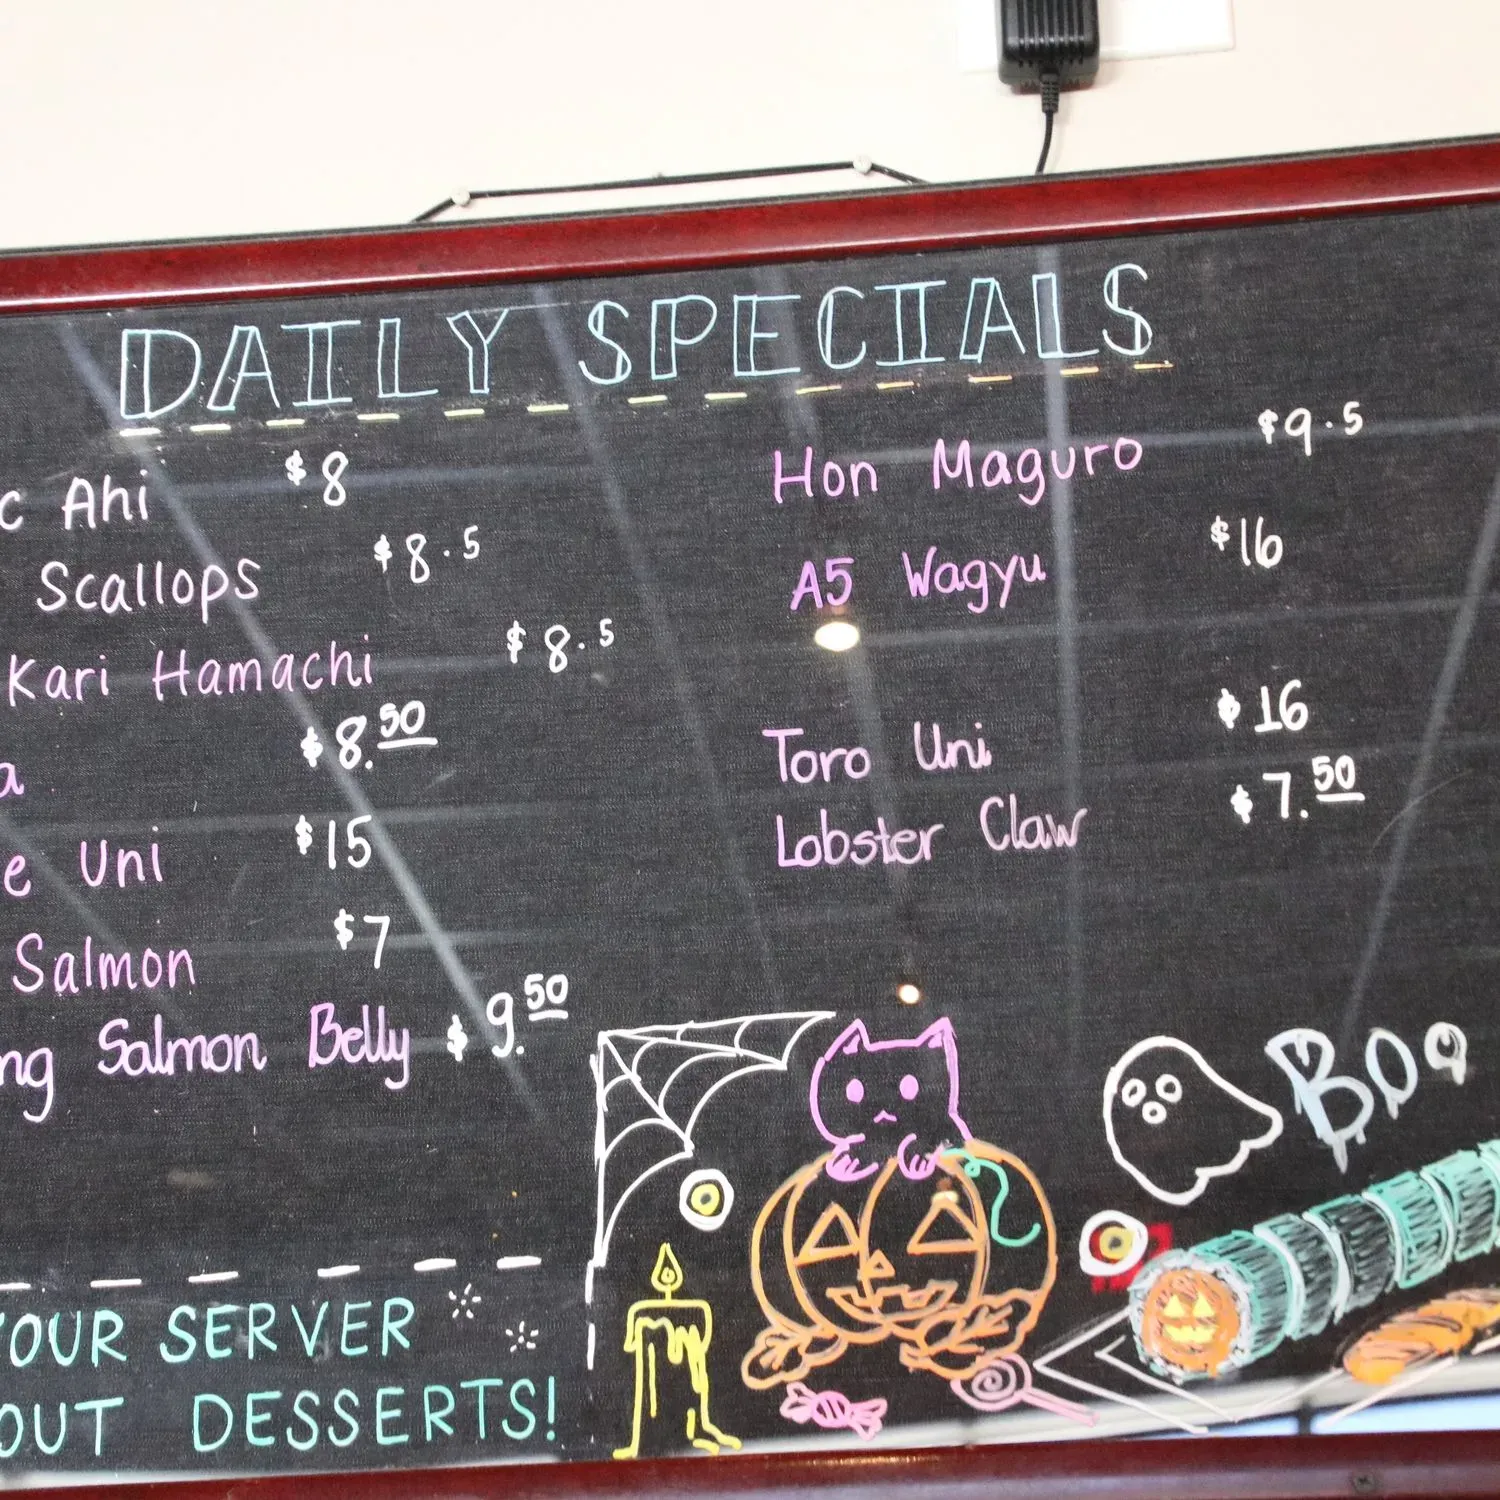 DAILY SPECIALS
c Ahi $8
Scallops $8.5
Kari Hamachi $8.5
a $8.50
e Uni $15
Salmon $7
ng Salmon Belly $9.50
Hon Maguro $9.5
A5 Wagyu $16
Toro Uni $16
Lobster Claw $7.50
BOO
YOUR SERVER
OUT DESSERTS!